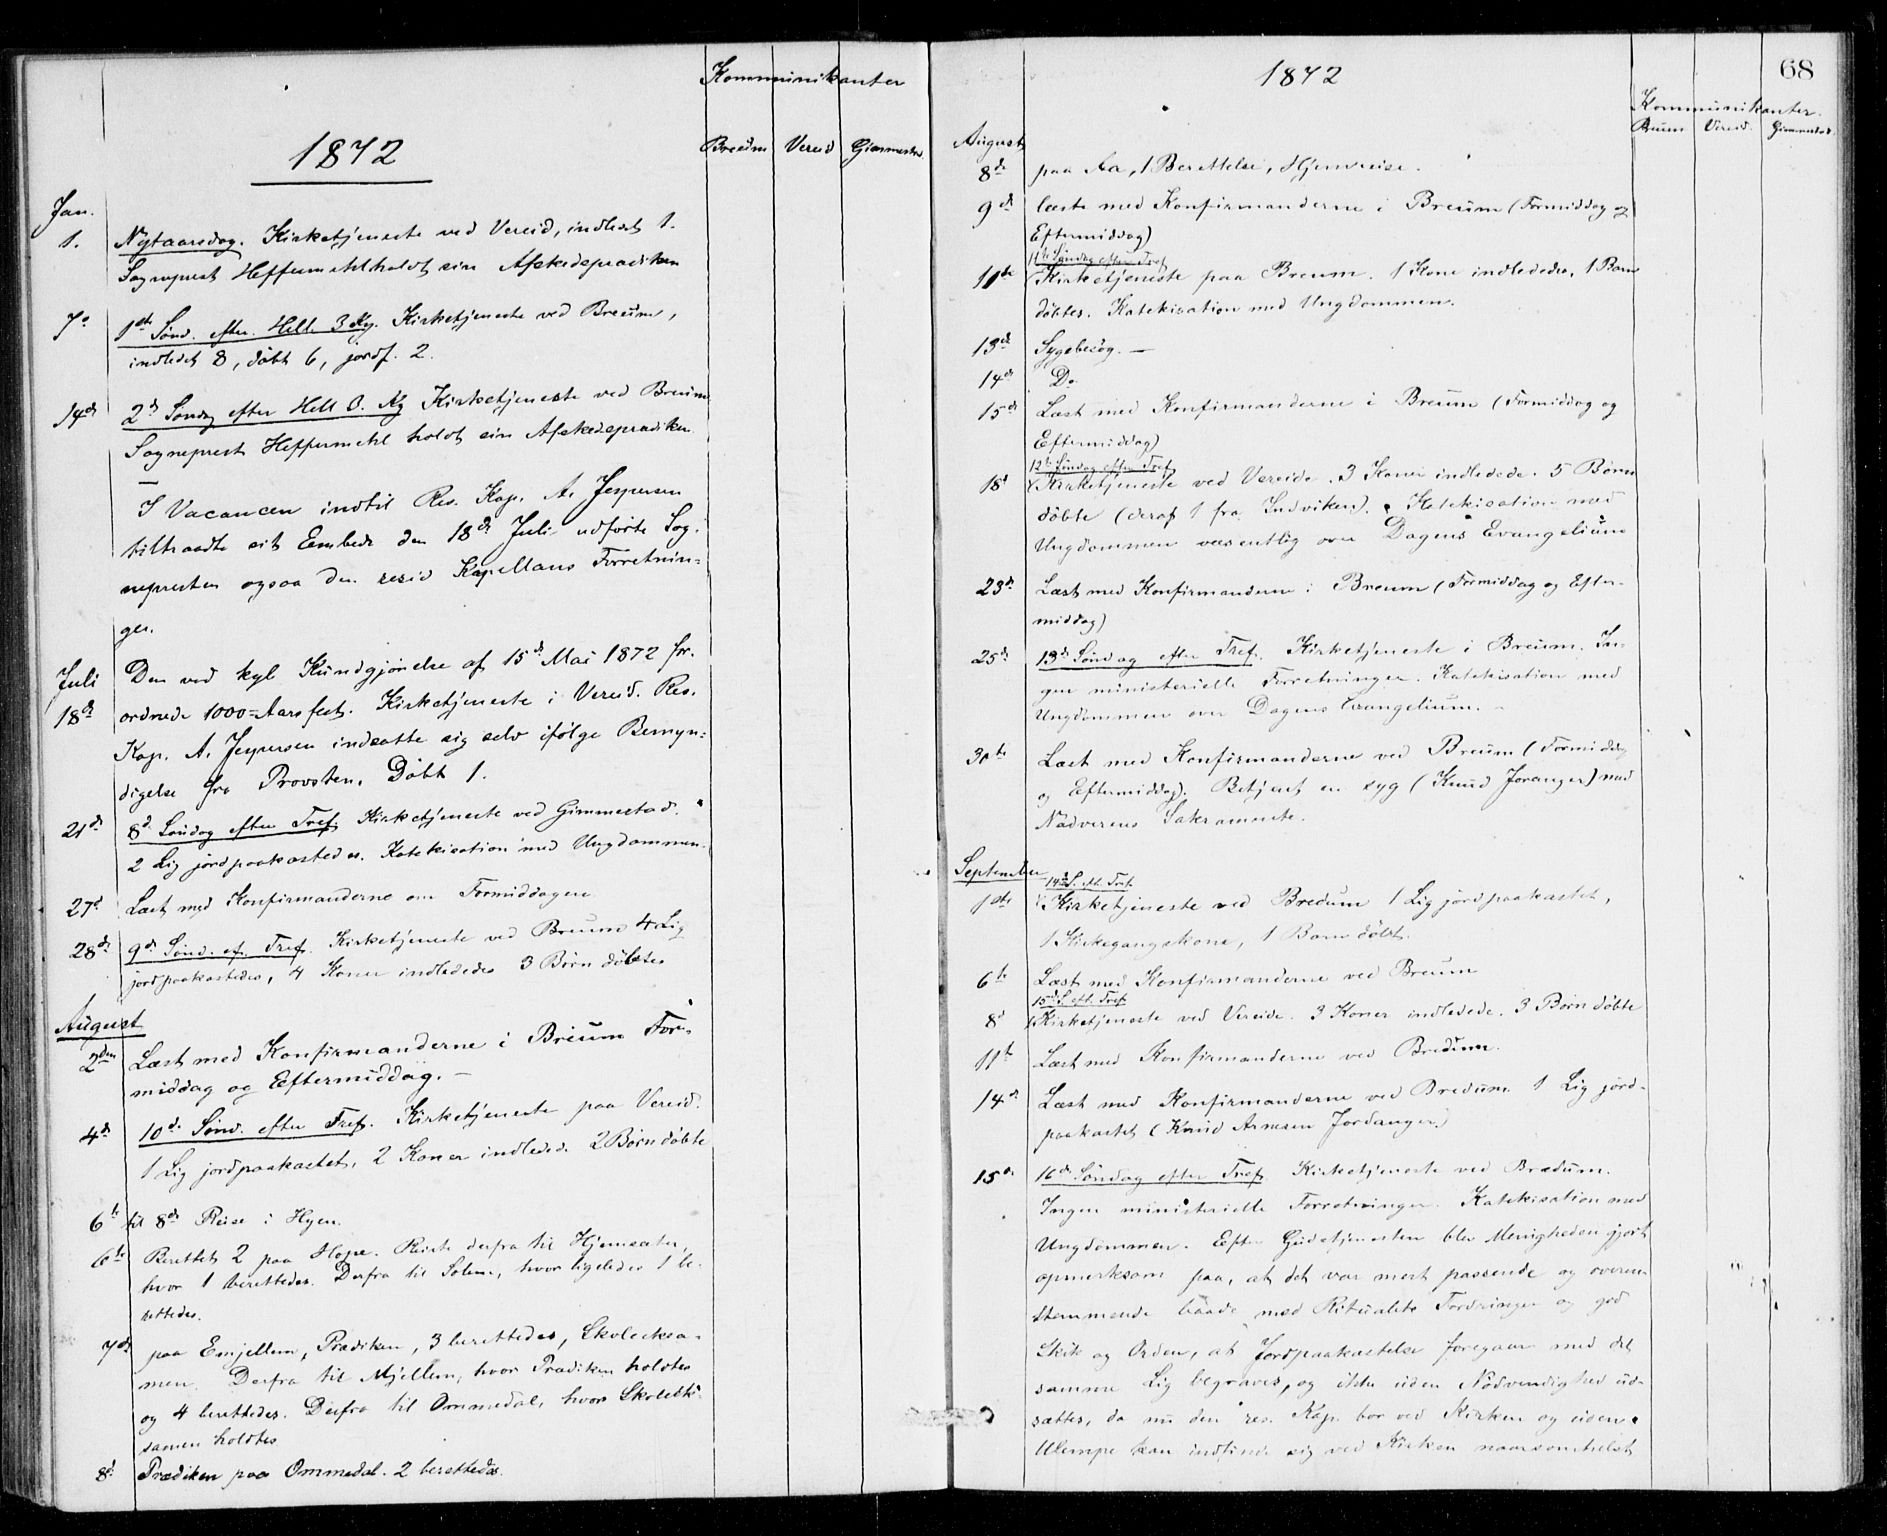 Kommunikanter
1872
Breum Vereid Gimmestad
Jan.
1. Nytaarsdag. Kirketjeneste ved Vereid, indledet 1.
Sogneprest Heffermehl holdt sin Afskedsprædiken
7de 1ste Sönd. efter Hell. 3 Kg. Kirketjeneste ved Breum,
indledet 8, döbt 6, jordf. 2.
14de 2d Söndag efter Hell. 3. Kg Kirketjeneste ved Breum
Sogneprest Heffermehl holdt sin Afskedsprædiken
I Vacancen indtil Res. Kap. A. Jespersen
tiltraadte sit Embede den 18de Juli udförte Sog-
nepresten ogsaa den resid Kapellans Forretnin=
ger.
Juli Den ved kgl. Kundgjörelse af 15de Mai 1872 for-
18de ordnede 1000=Aarsfest. Kirketjeneste i Vereid. Res.
Kap. A. Jespersen indsatte sig selv ifölge Bemyn=
digelse fra Provsten. Döbt 1.
21de 8d Söndag efter Tref. Kirketjeneste ved Gimmestad.
2 Lig jordpaakastedes. Katekisation med Ungdommen.
27d Læst med Konfirmanderne om Formiddagen
28de 9de Sönd. ef. Tref. Kirketjeneste ved Breum 4 Lig
jordpaakastedes, 4 Koner indlededes 3 Börn döbtes
August
2den Læst med Konfirmanderne i Breum For-
middag og Eftermiddag. –
4de 10de Sönd. efter Tref. Kirketjeneste paa Vereid.
1 Lig jordpaakastet, 2 Koner indlede. 2 Börn döbte
6te til 8de Reise i Hyen.
6te Berettet 2 paa Hope. Reiste derfra til Hjemsæter,
hvor 1 berettedes. Derfra til Solem, hvor ligeledes 1 be-
rettedes.
7de paa Emjellem, Prædiken, 3 berettedes, Skoleeksa-
men. Derfra til Mjellem, hvor Prædiken holdtes
og 4 berettedes. Derfra til Ommedal, hvor Skoleek-
samen holdtes
8de Prædiken paa Ommedal. 2 berettedes.
1872
68
Kommunikanter.
Breum Vereid. Gimmestad.
August
8de paa Aa, 1 Berettelse, Hjemreise.
9de læste med Konfirmanderne i Breum (Formiddag og
Eftermiddag)
11te Söndag efter Tref.
11te Kirketjeneste paa Breum. 1 Kone indlededes, 1 Barn
döbtes. Katekisation med Ungdommen.
13de Sygebesög. –
14de Do
15de Læst med Konfirmanderne i Breum (Formiddag og
Eftermiddag)
12te Söndag efter Tref.
18d Kirketjeneste ved Vereide. 3 Koner indledede. 5 Börn
döbte (deraf 1 fra Indviken). Katekisation med
Ungdommen væsentlig over Dagens Evangelium
23de Læst med Konfirmanderne i Breum (Formiddag og Efter-
middag)
25de 13de Söndag efter Tref. Kirketjeneste i Breum. In-
gen ministerielle Forretninger. Katekisation med
Ungdommen over Dagens Evangelium. –
30te Læst med Konfirmanderne ved Breum (Formiddag
og Eftermiddag). Betjent en syg (Knud Joranger) med
Nadverens Sakramente.
September
14de S. eft. Tref.
1ste Kirketjeneste ved Bredum 1 Lig jordpaakastet,
1 Kirkegangskone, 1 Barn döbt.
6te Læst med Konfirmanderne ved Breum
15de S. eft. Tref.
8d Kirketjeneste ved Vereide. 3 Koner indledede. 3 Börn döbte
11te Læst med Konfirmanderne ved Bredum.
14de Læst med Konfirmanderne ved Bredum. 1 Lig jord-
paakastet (Knud Arnesen Jordanger)
15de 16de Söndag efter Tref. Kirketjeneste ved Bredum.
Ingen ministerielle Forretninger. Katekisation med
Ungdommen. Efter Gudstjenesten blev Menigheden gjort
opmerksom paa, at det var mest passende og overen-
stemmende baade med Ritualets Fordringer og god
Skik og Orden, at Jordpaakastelse foregaar med det
samme Lig begraves, og ikke uden Nödvendighed ud-
sættes, da nu den res. Kap. bor ved Kirken og uden
Ulempe kan indfinde sig ved Kirken naarsomhelst